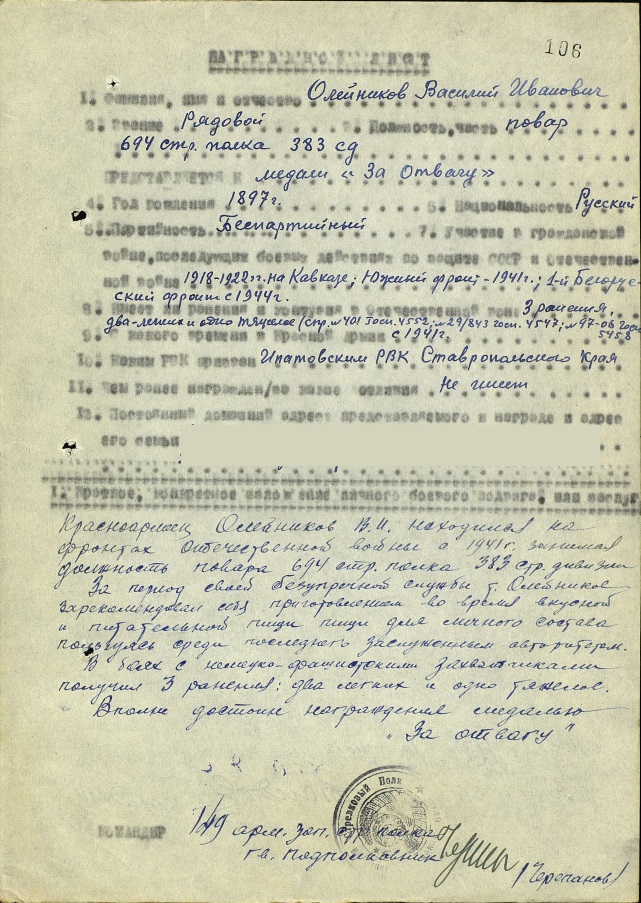 106
НАГРАДНОЙ ЛИСТ
1. Фамилия, имя и отчество Олейников Василий Иванович
2. Звание Рядовой 3. Должность, часть повар
694 стр. полка 383 сд
ПРЕДСТАВЛЯЕТСЯ К медали «За Отвагу»
4. Год рождения 1897г. 5. Национальность Русский
6. Партийность Беспартийный 7. Участие в гражданской
войне, последующих боевых действиях по защите СССР и отечествен-
ной войне 1918-1922гг. на Кавказе; Южный фронт-1941г.; 1-й Белорус-
ский фронт с 1944г.
8. Имеет ли ранения и контузии в Отечественной войне 3 ранения,
два-легких и одно тяжелое (спр. №401 госп. 4552; №29/843 госп. 4547; №97-06 госп.
5458
9. С какого времени в Красной Армии с 1941г.
10. Каким РВК призван Ипатовским РВК Ставропольского Края
11. Чем ранее награжден/за какие отличия Не имеет
12. Постоянный домашний адрес представляемого к награде и адрес
его семьи
I. Краткое, конкретное изложение личного боевого подвига, или заслуг
Красноармеец Олейников В.И. находился на
фронтах отечественной войны с 1941г. занимая
должность повара 694 стр. полка 383 стр. дивизии
За период своей безупречной службы т. Олейников
зарекомендовал себя приготовлением во время вкусной
и питательной пищи пищи для личного состава
пользуясь среди последнего заслуженным авторитетом.
В боях с немецко-фашистскими захватчиками
получил 3 ранения: два легких и одно тяжелое.
Вполне достоин награждения медалью
„За отвагу"
Стрелковый Полк
КОМАНДИР 149 арм. зап. стр. полка
гв. подполковник
/Черепанов/